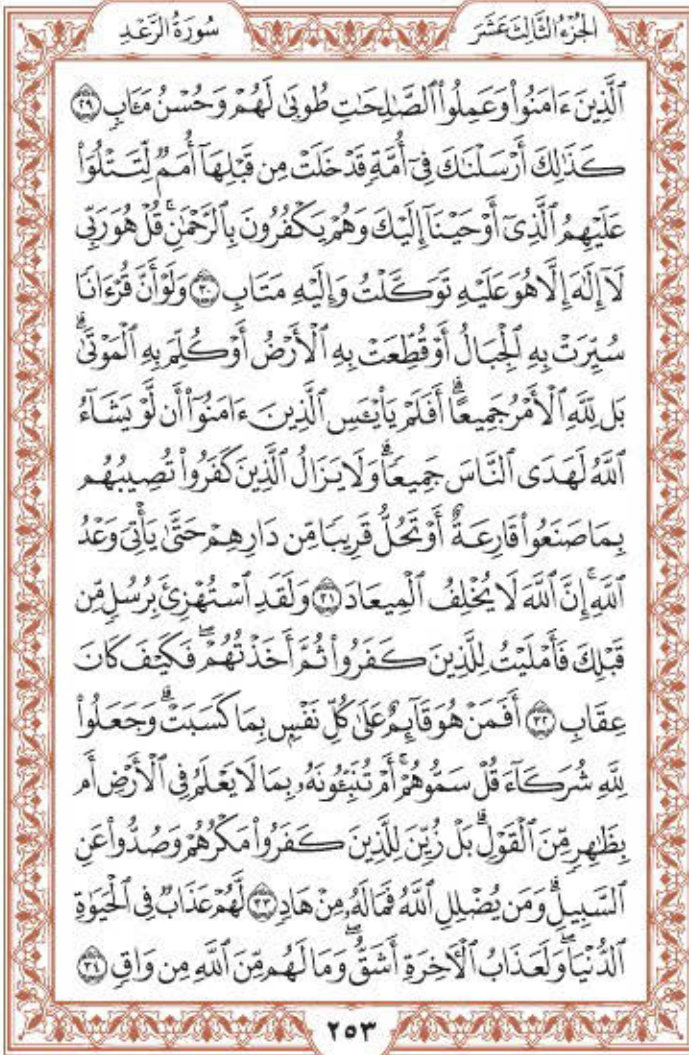 الجُزْءُ الثَّالِثَ عَشَرَ
سُورَةُ الرَّعْدِ
ٱلَّذِينَ ءَامَنُواْ وَعَمِلُواْ ٱلصَّٰلِحَٰتِ طُوبَىٰ لَهُمْ وَحُسْنُ مَـَٔابٖ ۝٢٩
كَذَٰلِكَ أَرْسَلْنَٰكَ فِيٓ أُمَّةٖ قَدْ خَلَتْ مِن قَبْلِهَآ أُمَمٞ لِّتَتْلُوَاْ
عَلَيْهِمُ ٱلَّذِيٓ أَوْحَيْنَآ إِلَيْكَ وَهُمْ يَكْفُرُونَ بِٱلرَّحْمَٰنِۚ قُلْ هُوَ رَبِّي
لَآ إِلَٰهَ إِلَّا هُوَ عَلَيْهِ تَوَكَّلْتُ وَإِلَيْهِ مَتَابِ ۝٣٠ وَلَوْ أَنَّ قُرْءَانٗا
سُيِّرَتْ بِهِ ٱلْجِبَالُ أَوْ قُطِّعَتْ بِهِ ٱلْأَرْضُ أَوْ كُلِّمَ بِهِ ٱلْمَوْتَىٰۗ
بَل لِّلَّهِ ٱلْأَمْرُ جَمِيعًاۗ أَفَلَمْ يَاْيْـَٔسِ ٱلَّذِينَ ءَامَنُوٓاْ أَن لَّوْ يَشَآءُ
ٱللَّهُ لَهَدَى ٱلنَّاسَ جَمِيعٗاۗ وَلَا يَزَالُ ٱلَّذِينَ كَفَرُواْ تُصِيبُهُم
بِمَا صَنَعُواْ قَارِعَةٌ أَوْ تَحُلُّ قَرِيبٗا مِّن دَارِهِمْ حَتَّىٰ يَأْتِيَ وَعْدُ
ٱللَّهِۚ إِنَّ ٱللَّهَ لَا يُخْلِفُ ٱلْمِيعَادَ ۝٣١ وَلَقَدِ ٱسْتُهْزِئَ بِرُسُلٖ مِّن
قَبْلِكَ فَأَمْلَيْتُ لِلَّذِينَ كَفَرُواْ ثُمَّ أَخَذْتُهُمْۖ فَكَيْفَ كَانَ
عِقَابِ ۝٣٢ أَفَمَنْ هُوَ قَآئِمٌ عَلَىٰ كُلِّ نَفْسِۭ بِمَا كَسَبَتْۗ وَجَعَلُواْ
لِلَّهِ شُرَكَآءَ قُلْ سَمُّوهُمْۚ أَمْ تُنَبِّـُٔونَهُۥ بِمَا لَا يَعْلَمُ فِي ٱلْأَرْضِ أَم
بِظَٰهِرٖ مِّنَ ٱلْقَوْلِۗ بَلْ زُيِّنَ لِلَّذِينَ كَفَرُواْ مَكْرُهُمْ وَصُدُّواْ عَنِ
ٱلسَّبِيلِۗ وَمَن يُضْلِلِ ٱللَّهُ فَمَا لَهُۥ مِنْ هَادٖ ۝٣٣ لَّهُمْ عَذَابٞ فِي ٱلْحَيَوٰةِ
ٱلدُّنْيَاۖ وَلَعَذَابُ ٱلْأٓخِرَةِ أَشَقُّۖ وَمَا لَهُم مِّنَ ٱللَّهِ مِن وَاقٖ ۝٣٤
٢٥٣